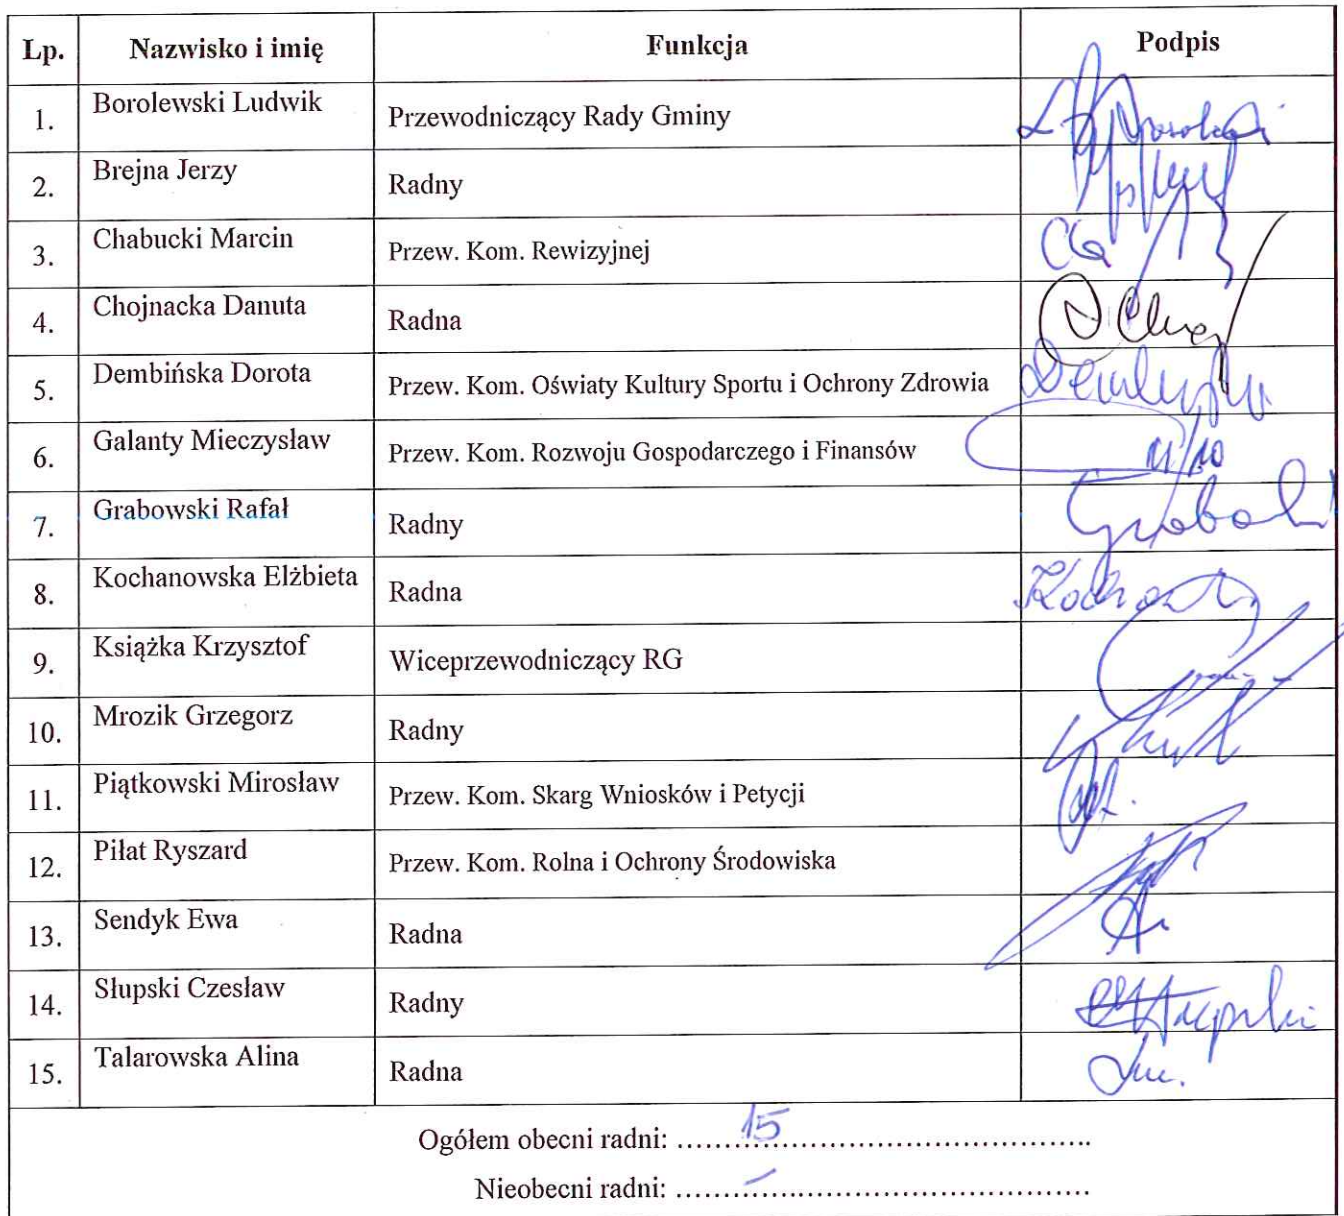 Lp. Nazwisko i imię Funkcja Podpis
1. Borolewski Ludwik Przewodniczący Rady Gminy
2. Brejna Jerzy Radny
3. Chabucki Marcin Przew. Kom. Rewizyjnej
4. Chojnacka Danuta Radna
5. Dembińska Dorota Przew. Kom. Oświaty Kultury Sportu i Ochrony Zdrowia
6. Galanty Mieczysław Przew. Kom. Rozwoju Gospodarczego i Finansów
7. Grabowski Rafał Radny
8. Kochanowska Elżbieta Radna
9. Książka Krzysztof Wiceprzewodniczący RG
10. Mrozik Grzegorz Radny
11. Piątkowski Mirosław Przew. Kom. Skarg Wniosków i Petycji
12. Piłat Ryszard Przew. Kom. Rolna i Ochrony Środowiska
13. Sendyk Ewa Radna
14. Słupski Czesław Radny
15. Talarowska Alina Radna
Ogółem obecni radni: ....15....
Nieobecni radni: ....–....